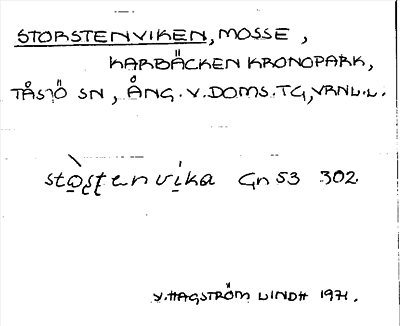 STORSTENVIKEN, MOSSE,
KARBÄCKEN KRONOPARK,
TÅSJÖ SN, ÅNG. V. DOMS. TG, VRNL.L.
stò̱s̱ṯenvi̱ka Gn 53 302
V. HAGSTRÖM LINDH 1971.